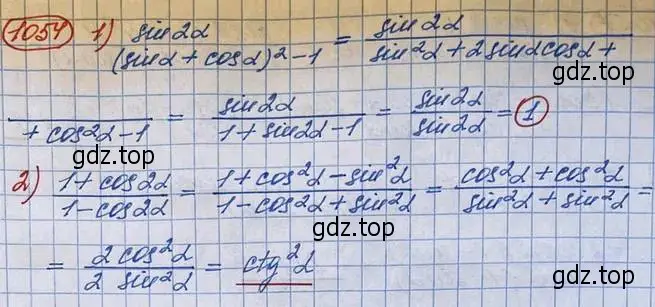 1054 1) sin2α / (sinα + cosα)² − 1 = sin2α / sin²α + 2sinαcosα +
gdz.top
/ + cos²α − 1 = sin2α / 1 + sin2α − 1 = sin2α / sin2α = 1
gdz.top gdz.top
2) 1 + cos2α / 1 − cos2α = 1 + cos²α − sin²α / 1 − cos²α + sin²α = cos²α + cos²α / sin²α + sin²α =
gdz.top gdz.top
= 2 cos²α / 2 sin²α = ctg²α
gdz.top